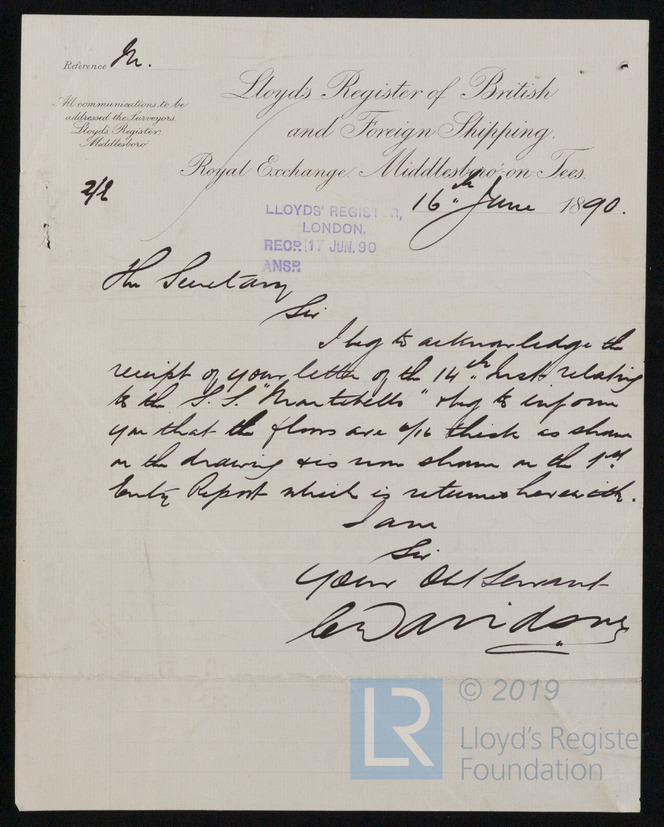 Reference M.
All communications to be
addressed the Surveyors.
Lloyd's Register.
Middlesboro'
Lloyd's Register of British
and Foreign Shipping.
Royal Exchange, Middlesboro'-on-Tees.
16th June 1890.
LLOYDS' REGISTER,
LONDON.
RECD. 17 JUN. 90
ANSD
The Secretary
Sir
I beg to acknowledge the
receipt of your letter of the 14th Inst. relating
to the S.S. "Montebello" & beg to inform
you that the floors are /16 thick as shown
on the drawing & is now shown on the 1st
Entry Report which is returned herewith.
I am
Sir
Your Obt Servant
Davidson
LR
© 2019
Lloyd's Register
Foundation